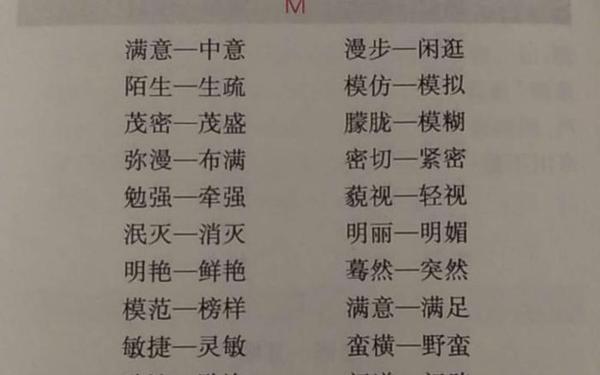 M
满意—中意 漫步—闲逛
陌生—生疏 模仿—模拟
茂密—茂盛 朦胧—模糊
弥漫—布满 密切—紧密
勉强—牵强 藐视—轻视
泯灭—消灭 明丽—明媚
明艳—鲜艳 蓦然—突然
模范—榜样 满意—满足
敏捷—灵敏 蛮横—野蛮